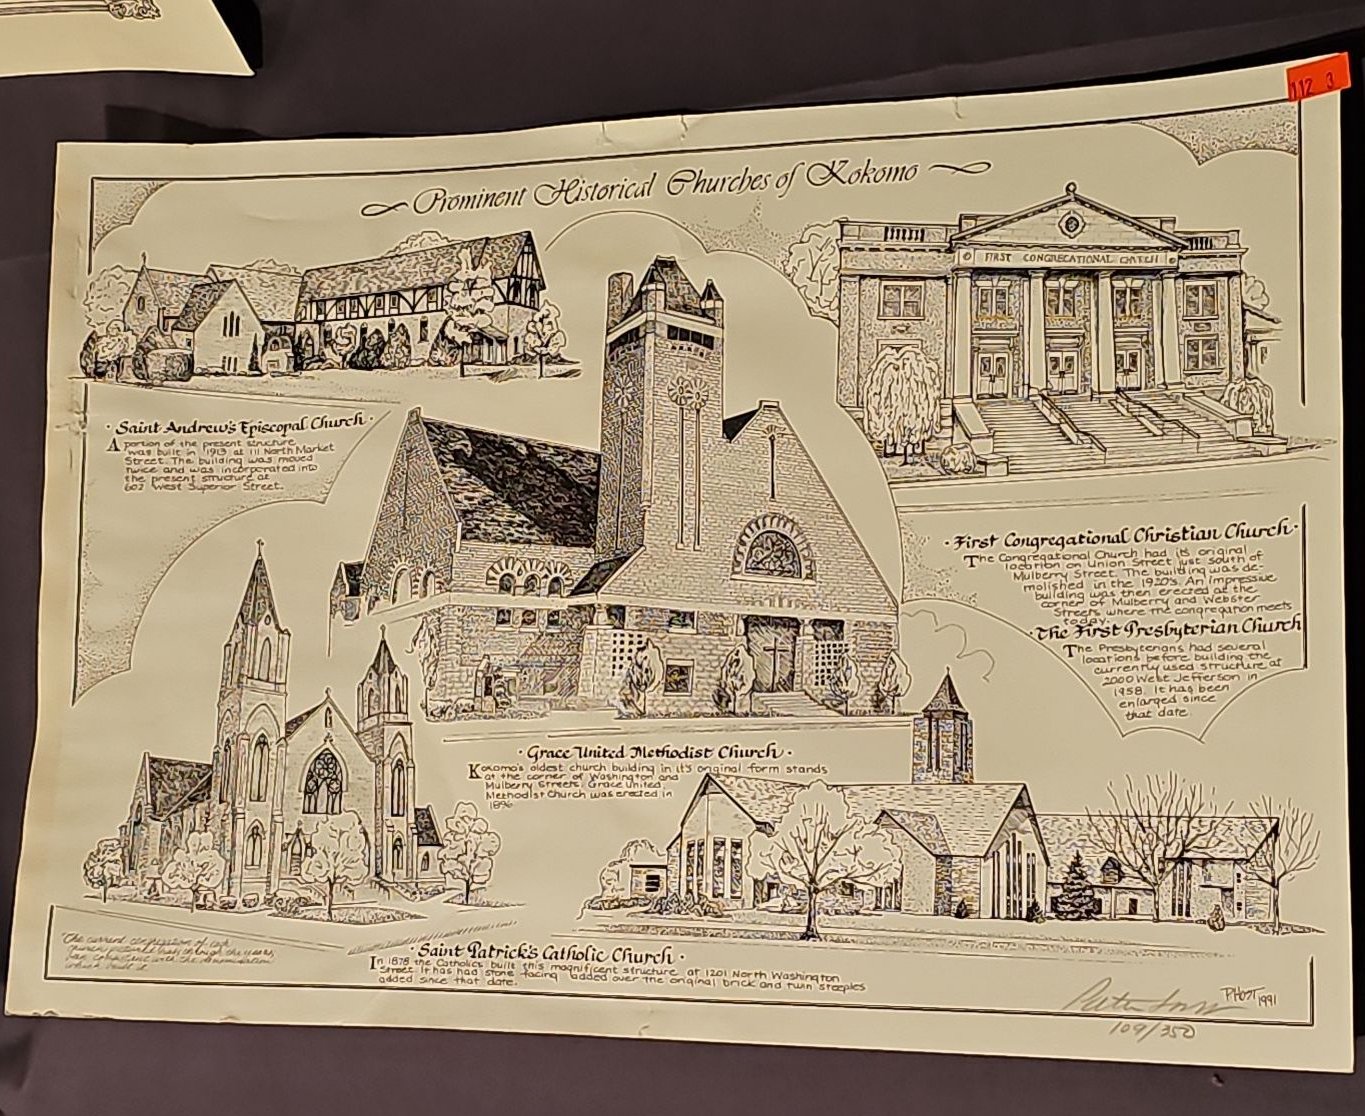 112 3
Prominent Historical Churches of Kokomo
FIRST CONGREGATIONAL CHURCH
· Saint Andrew's Episcopal Church ·
A portion of the present structure
was built in 1913 at 111 North Market
Street. The building was moved
twice and was incorporated into
the present structure at
602 West Superior Street.
· First Congregational Christian Church ·
The Congregational Church had its original
location on Union Street just south of
Mulberry Street. The building was de-
molished in the 1920's. An impressive
building was then erected at the
corner of Mulberry and Webster
Streets where the congregation meets
today.
· The First Presbyterian Church
The Presbyterians had several
locations before building the
currently used structure at
2000 West Jefferson in
1958. It has been
enlarged since
that date.
· Grace United Methodist Church ·
Kokomo's oldest church building in it's original form stands
at the corner of Washington and
Mulberry Streets. Grace United
Methodist Church was erected in
1896
· Saint Patrick's Catholic Church ·
In 1878 the Catholics built this magnificent structure at 1201 North Washington
Street. It has had stone facing added over the original brick and twin steeples
added since that date.
"The current congregation of each
church pictured has, through the years,
been consistent with the denomination
which built it.
PHOST 1991
109/350